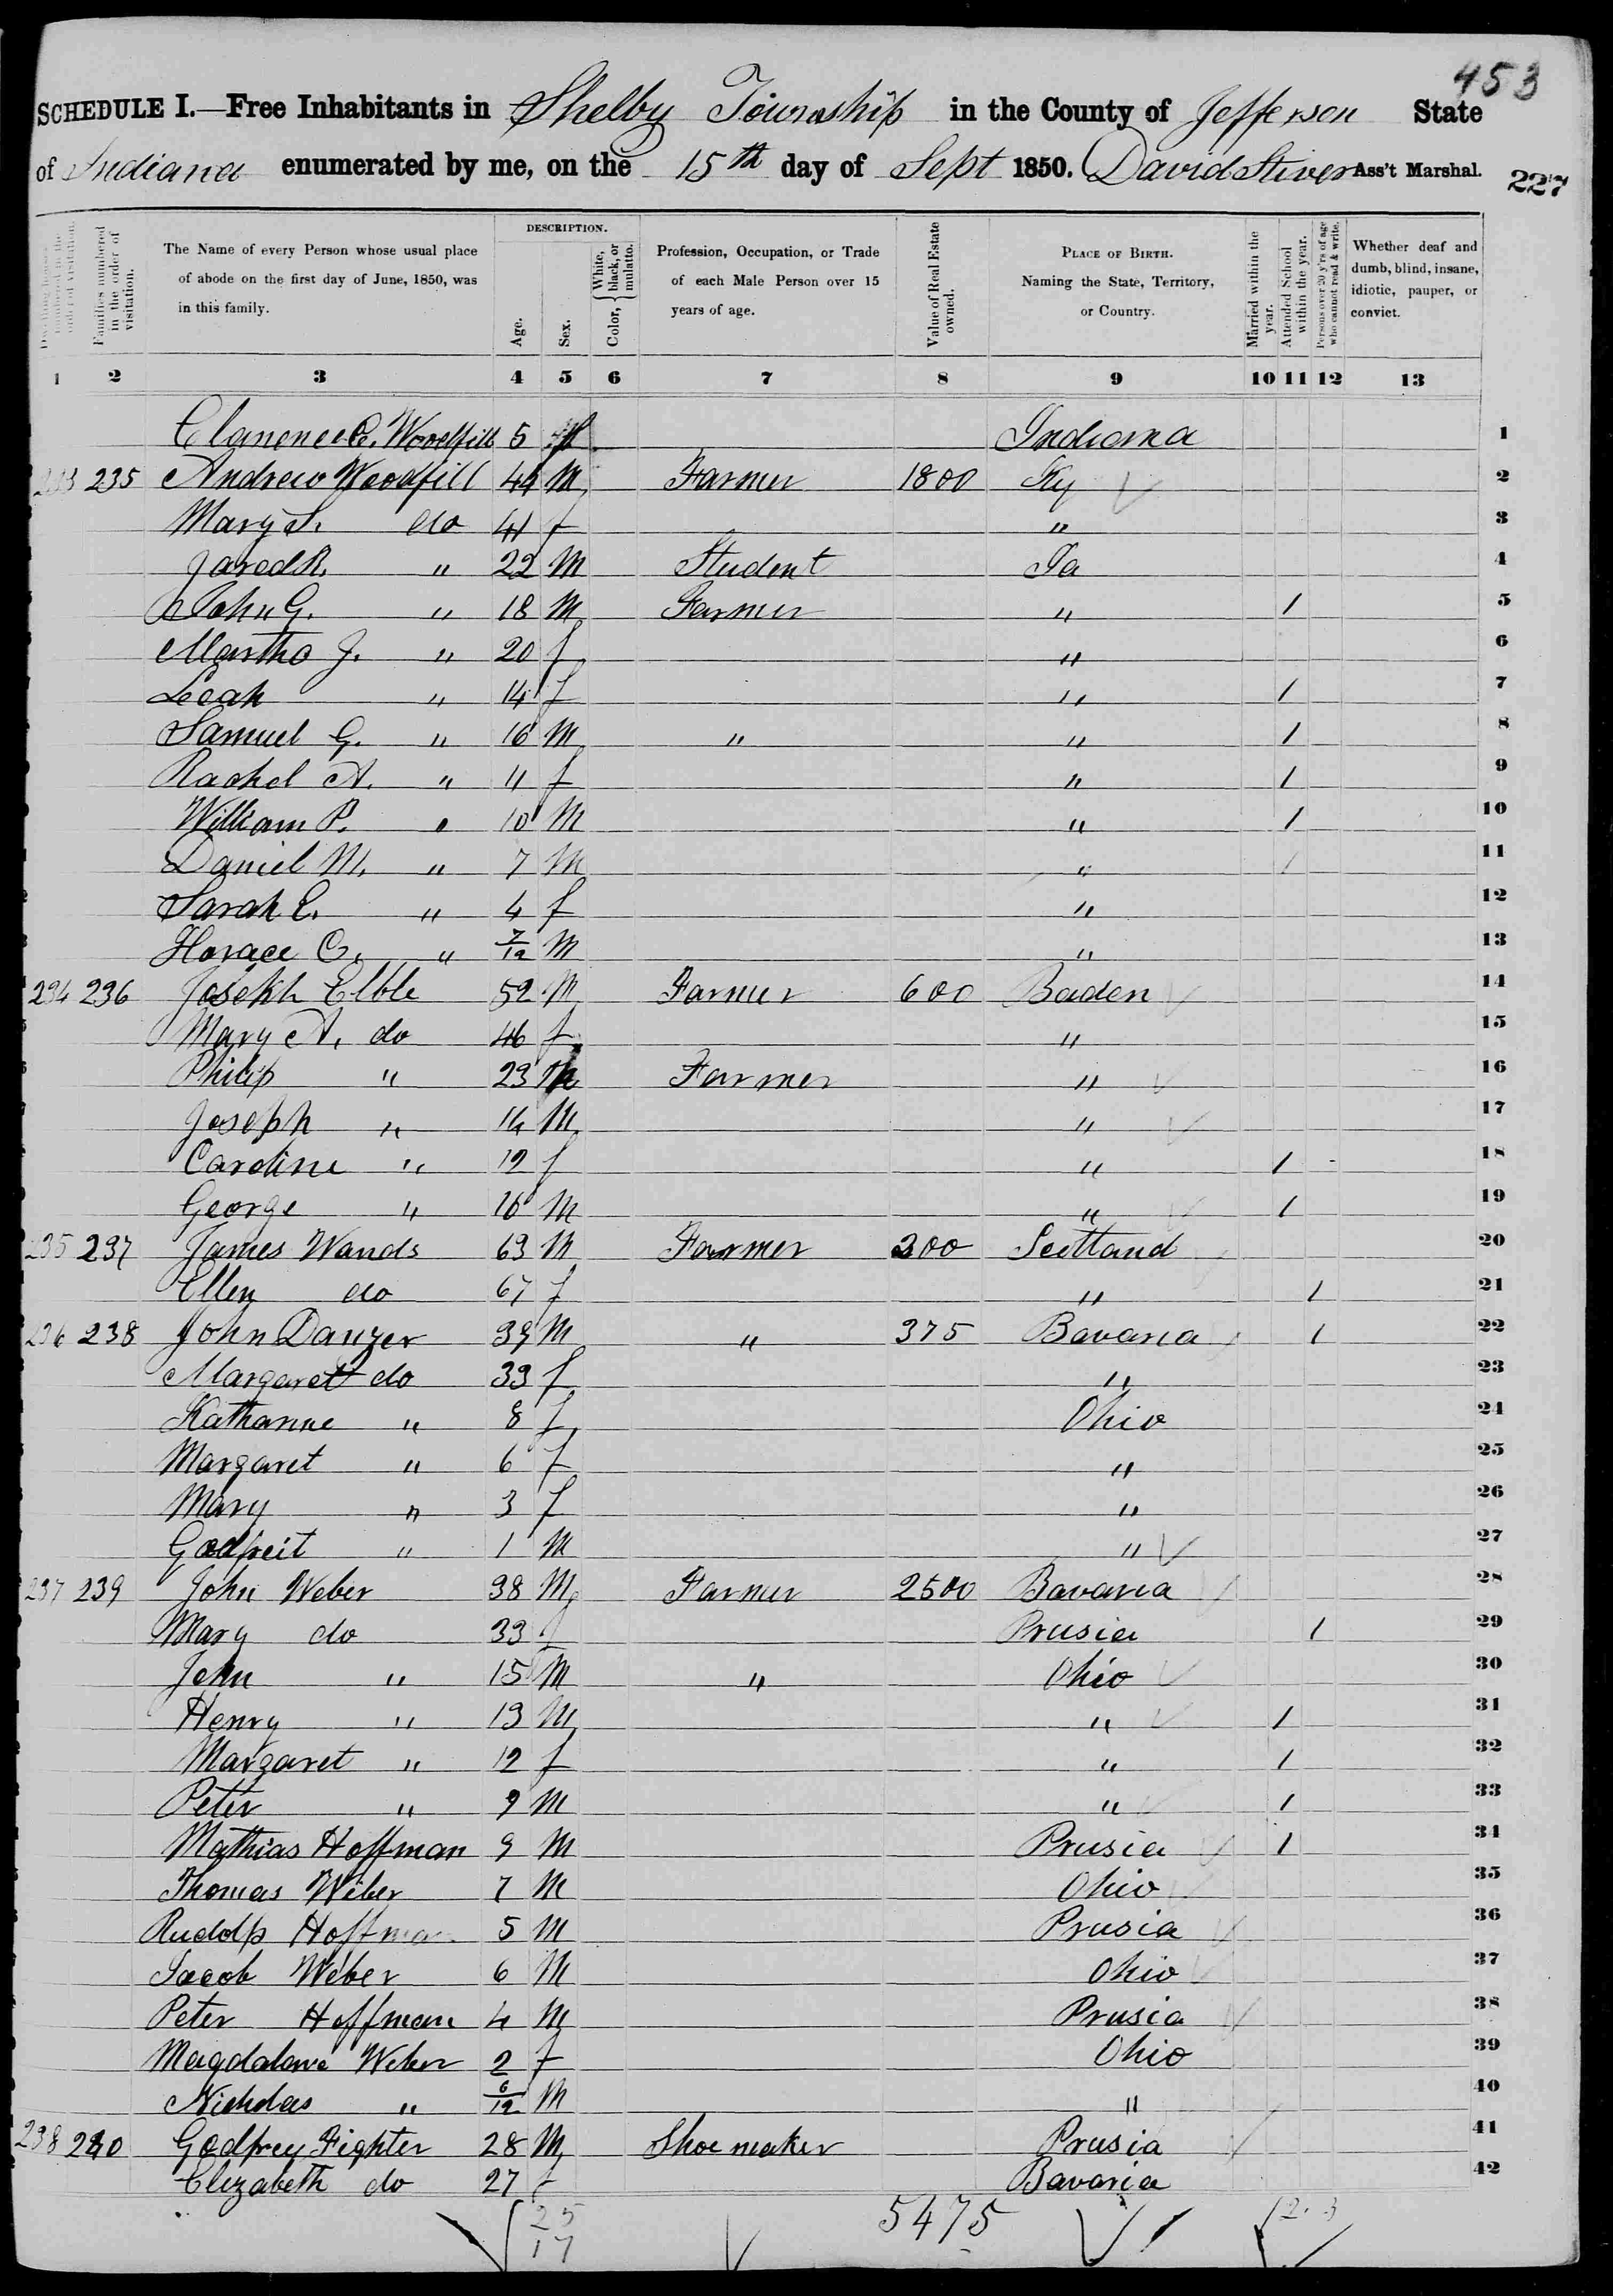 453
SCHEDULE I.—Free Inhabitants in Shelby Township in the County of Jefferson State
of Indiana enumerated by me, on the 15th day of Sept 1850. David Stiver Ass't Marshal.
227
DESCRIPTION.
Families numbered in the order of visitation.
The Name of every Person whose usual place of abode on the first day of June, 1850, was in this family.
Age.
Sex.
Color, { White, black, or mulatto.
Profession, Occupation, or Trade of each Male Person over 15 years of age.
Value of Real Estate owned.
PLACE OF BIRTH. Naming the State, Territory, or Country.
Married within the year.
Attended School within the year.
Persons over 20 y'rs of age who cannot read & write.
Whether deaf and dumb, blind, insane, idiotic, pauper, or convict.
1 2 3 4 5 6 7 8 9 10 11 12 13
Clarence C. Woodfill 5 Indiana 1
233 235 Andrew Woodfill 44 M Farmer 1800 Ky 2
Mary S. do 41 f " 3
Jared R. " 22 M Student Ia 4
John G. " 18 M Farmer " 1 5
Martha J. " 20 f " 6
Leah " 14 f " 1 7
Samuel G. " 16 M " " 1 8
Rachel A. " 11 f " 1 9
William P. " 10 M " 1 10
Daniel M. " 7 M " 1 11
Sarah E. " 4 f " 12
Horace C. " 7/12 M " 13
234 236 Joseph Elble 52 M Farmer 600 Baden 14
Mary A. do 46 f " 15
Philip " 23 M Farmer " 16
Joseph " 14 M " 17
Caroline " 12 f " 1 18
George " 10 M " 1 19
235 237 James Wands 63 M Farmer 200 Scottand 20
Ellen do 67 f " 1 21
236 238 John Danzer 39 M " 375 Bavaria 1 22
Margarett do 33 f " 23
Katharine " 8 f Ohio 24
Margaret " 6 f " 25
Mary " 3 f " 26
Godfreit " 1 M " 27
237 239 John Weber 38 M Farmer 2500 Bavaria 28
Mary do 33 f Prusia 1 29
John " 15 M " Ohio 30
Henry " 13 M " 1 31
Margaret " 12 f " 1 32
Peter " 9 M " 1 33
Mathias Hoffman 9 M Prusia 1 34
Thomas Weber 7 M Ohio 35
Rudolp Hoffman 5 M Prusia 36
Jacob Weber 6 M Ohio 37
Peter Hoffman 4 M Prusia 38
Magdalane Weber 2 f Ohio 39
Nicholas " 6/12 M " 40
238 240 Godfrey Fighter 28 M Shoe maker Prusia 41
Elizabeth do 27 f Bavaria 42
25
17
5475